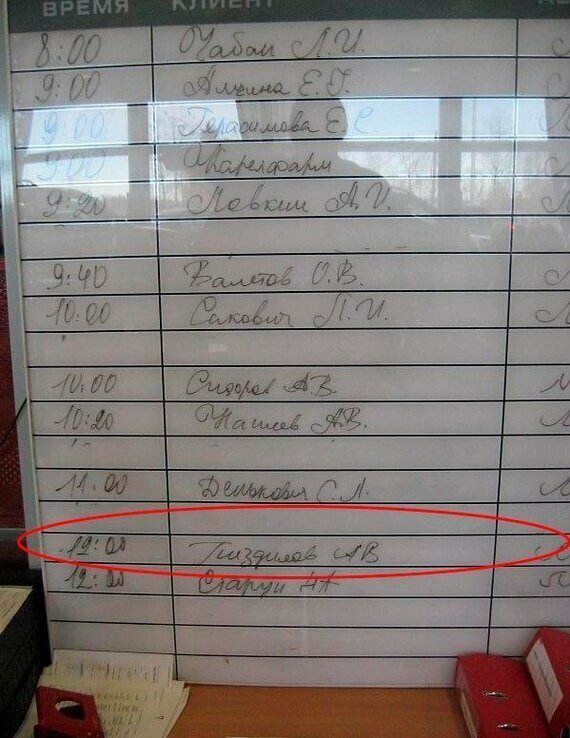 ВРЕМЯ КЛИЕНТ
8:00 Чабан Л.И.
9:00 Алчина Е.Г.
9:00 Герасимова Е С
9:00 Карелфарм
9:20 Ловкин А.И.
9:40 Валетов О.В.
10:00 Сакович Л.И.
10:00 Сидоров А.В.
10:20 Нашев А.В.
11:00 Денькович С.Л.
12:00 Пиздилов АВ
12:00 Старун